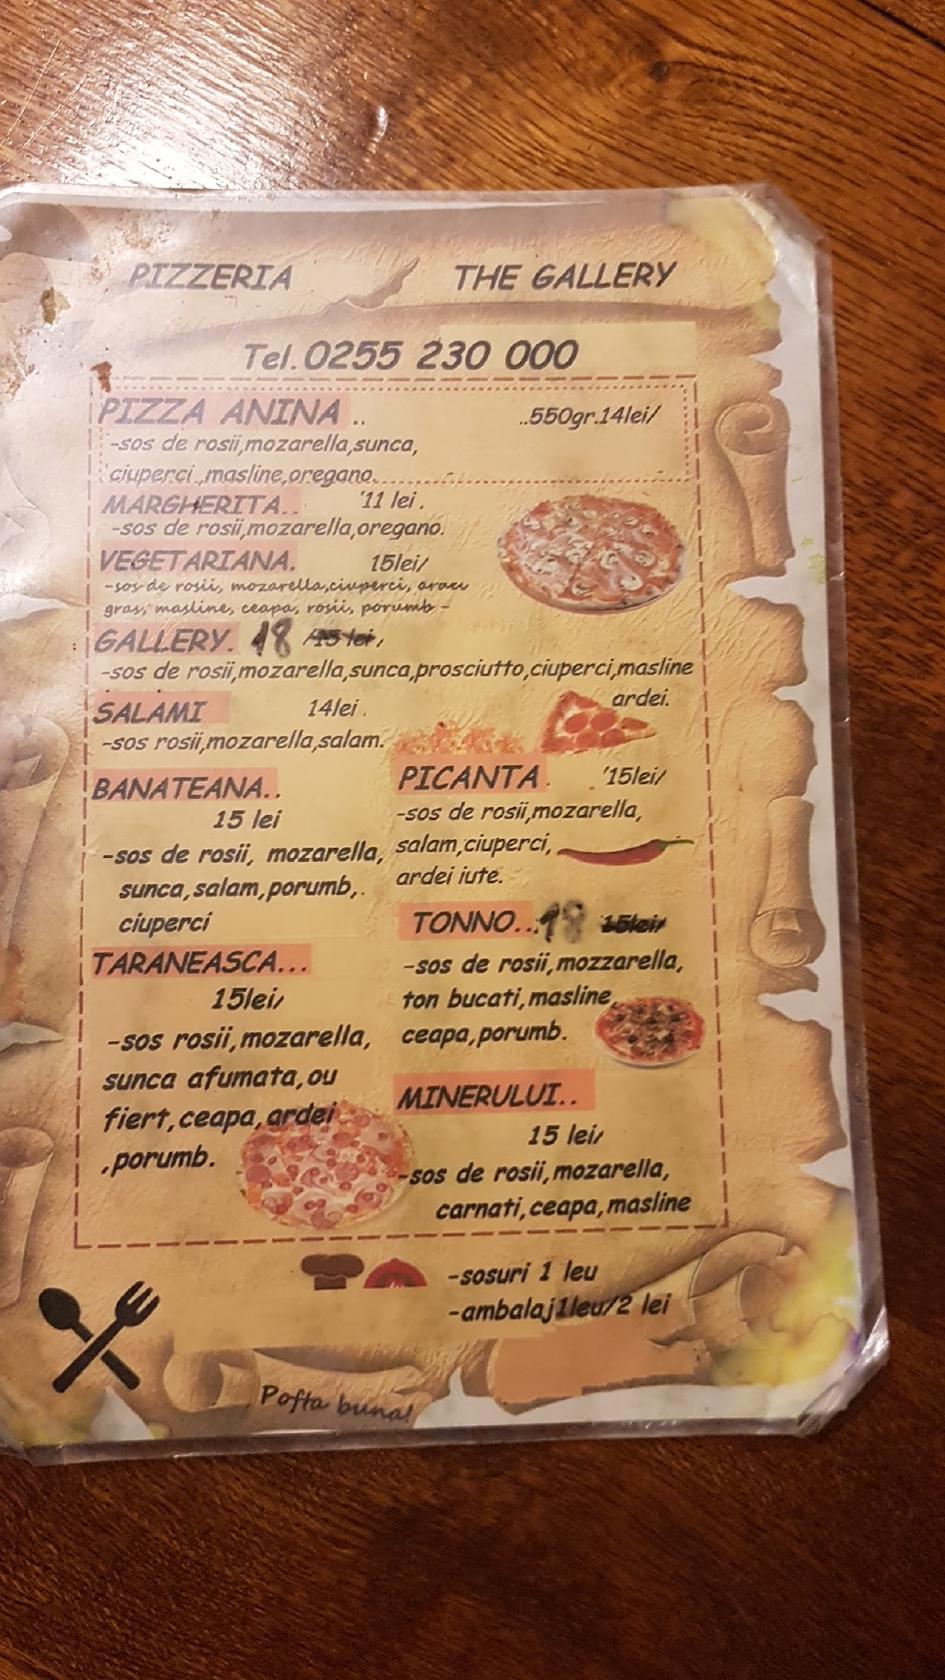 PIZZERIA THE GALLERY
Tel.0255 230 000
PIZZA ANINA .. ..550gr.14lei/
-sos de rosii,mozarella,sunca,
ciuperci.,masline,oregano.
MARGHERITA.. '11 lei .
-sos de rosii,mozarella,oregano.
VEGETARIANA. 15lei/
-sos de rosii, mozarella,ciuperci, araci
gras, masline, ceapa, rosii, porumb -
GALLERY. 18 /15 lei,
-sos de rosii,mozarella,sunca,prosciutto,ciuperci,masline
ardei.
SALAMI 14lei .
-sos rosii,mozarella,salam.
BANATEANA..
15 lei
-sos de rosii, mozarella,
sunca,salam,porumb,.
ciuperci
TARANEASCA...
15lei/
-sos rosii,mozarella,
sunca afumata,ou
fiert,ceapa,ardei
,porumb.
PICANTA . '15lei/
-sos de rosii,mozarella,
salam,ciuperci,
ardei iute.
TONNO... 18 15lei/
-sos de rosii,mozzarella,
ton bucati,masline,
ceapa,porumb.
MINERULUI..
15 lei/
-sos de rosii,mozarella,
carnati,ceapa,masline
-sosuri 1 leu
-ambalaj1leu/2 lei
Pofta buna!